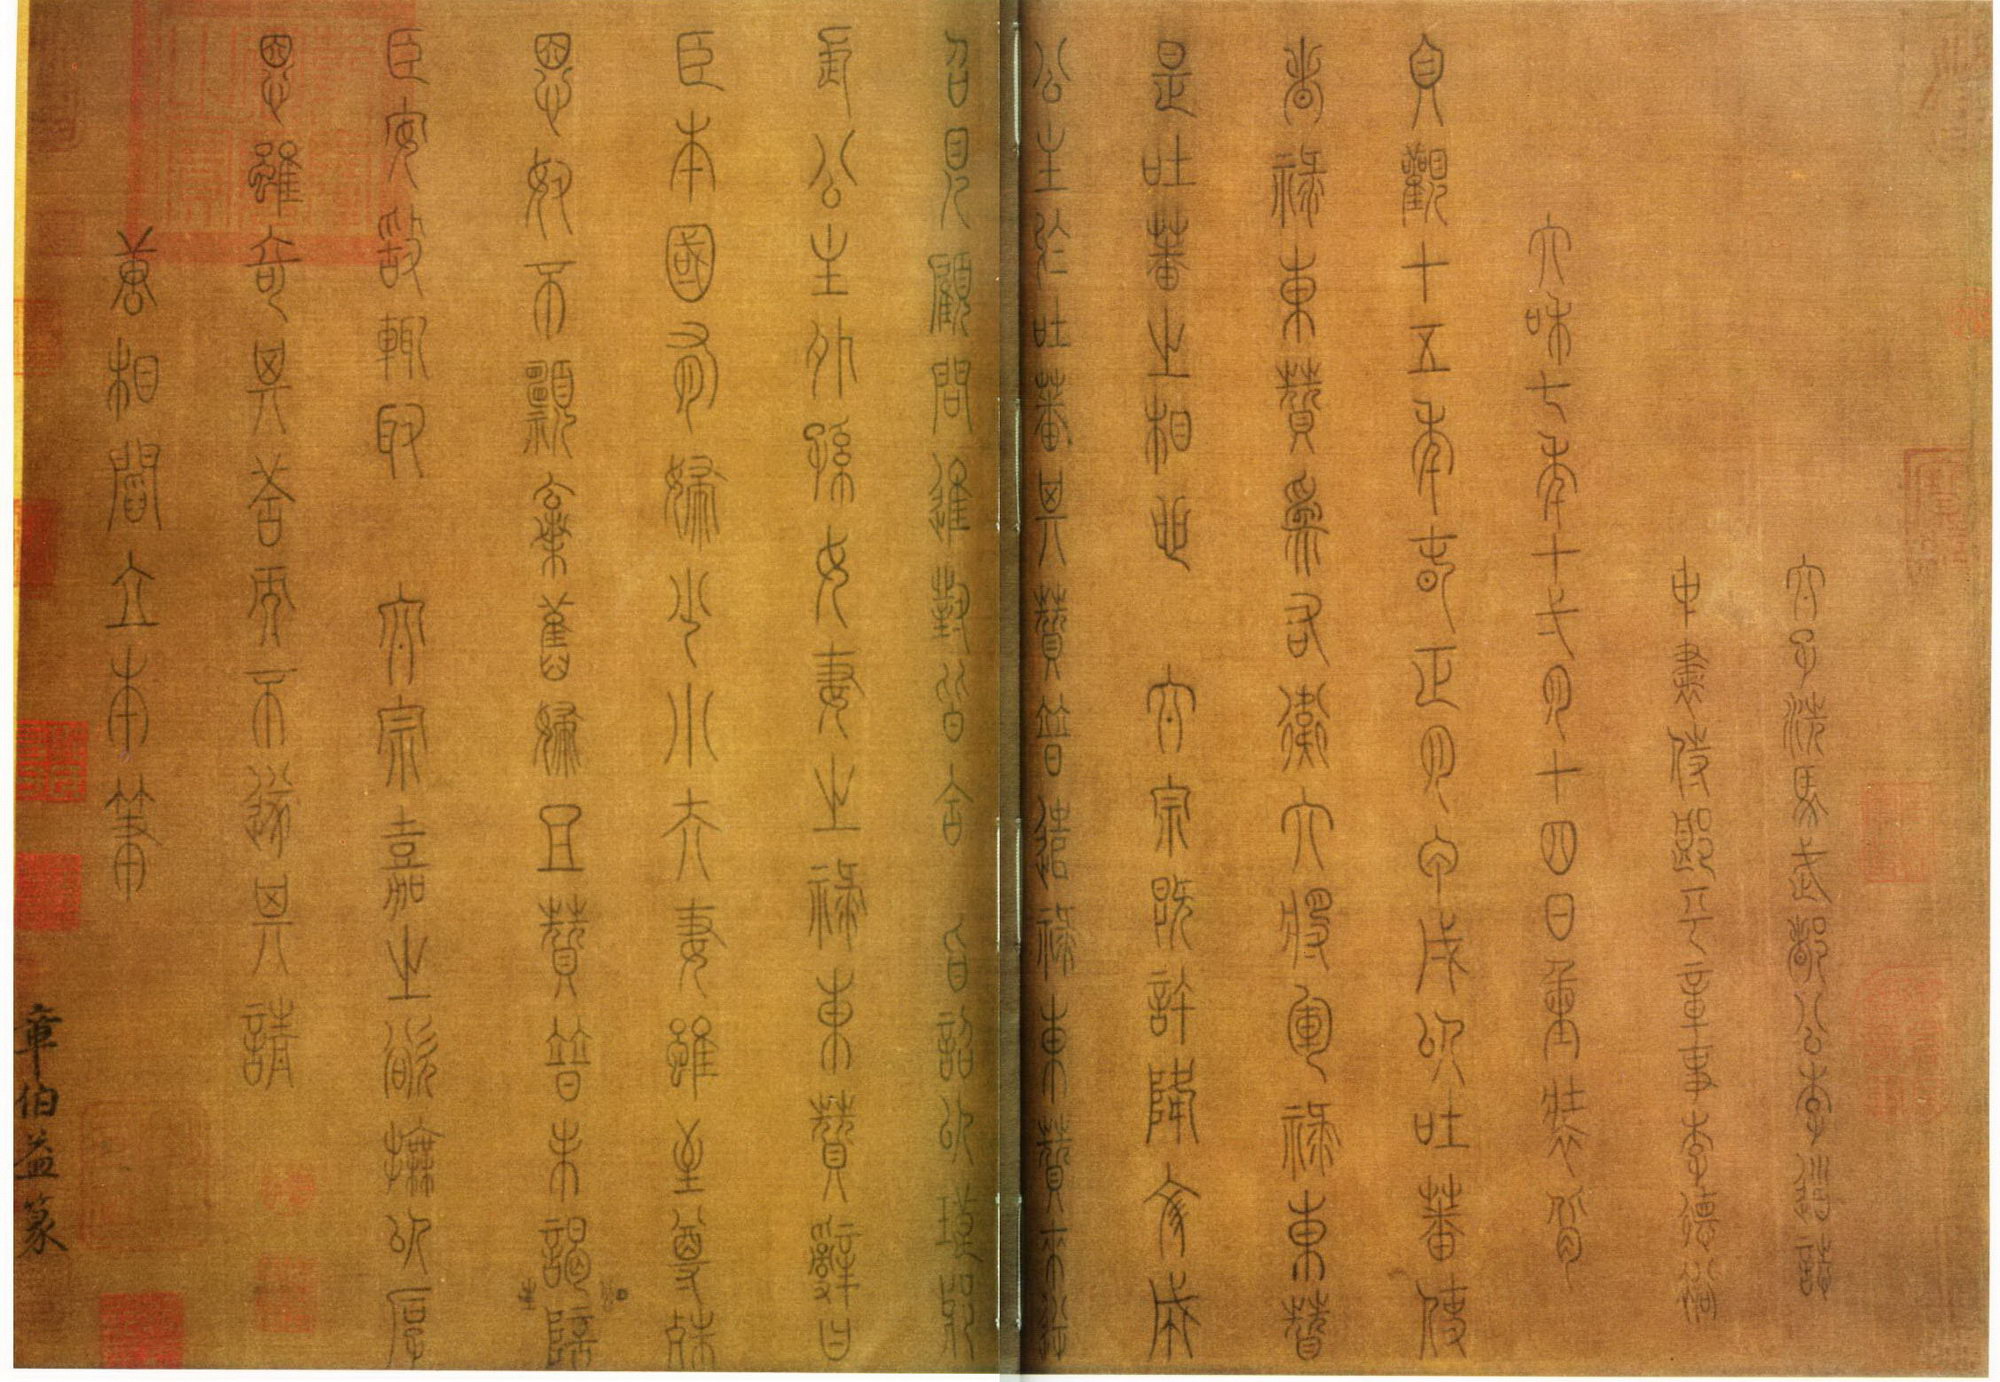 太子洗馬武都公李道誌
中書侍郎平章事李德裕
大和七年十弌月十四日重裝背
貞觀十五年春正月甲戌以吐蕃使
者祿東贊為右衛大將軍祿東贊
是吐蕃之相也 太宗既許降文成
公主於吐蕃其贊普遣祿東贊來逆
召見顧問進對皆合 旨詔以琅琊
長公主外孫女妻之祿東贊辭曰
臣本國有婦少小夫妻雖至尊殊
恩奴不願棄舊婦且贊普未謁陪
臣安敢輒取 太宗嘉之欲撫以厚
恩雖奇其答而不遂其請
唐相閻立本筆
章伯益篆